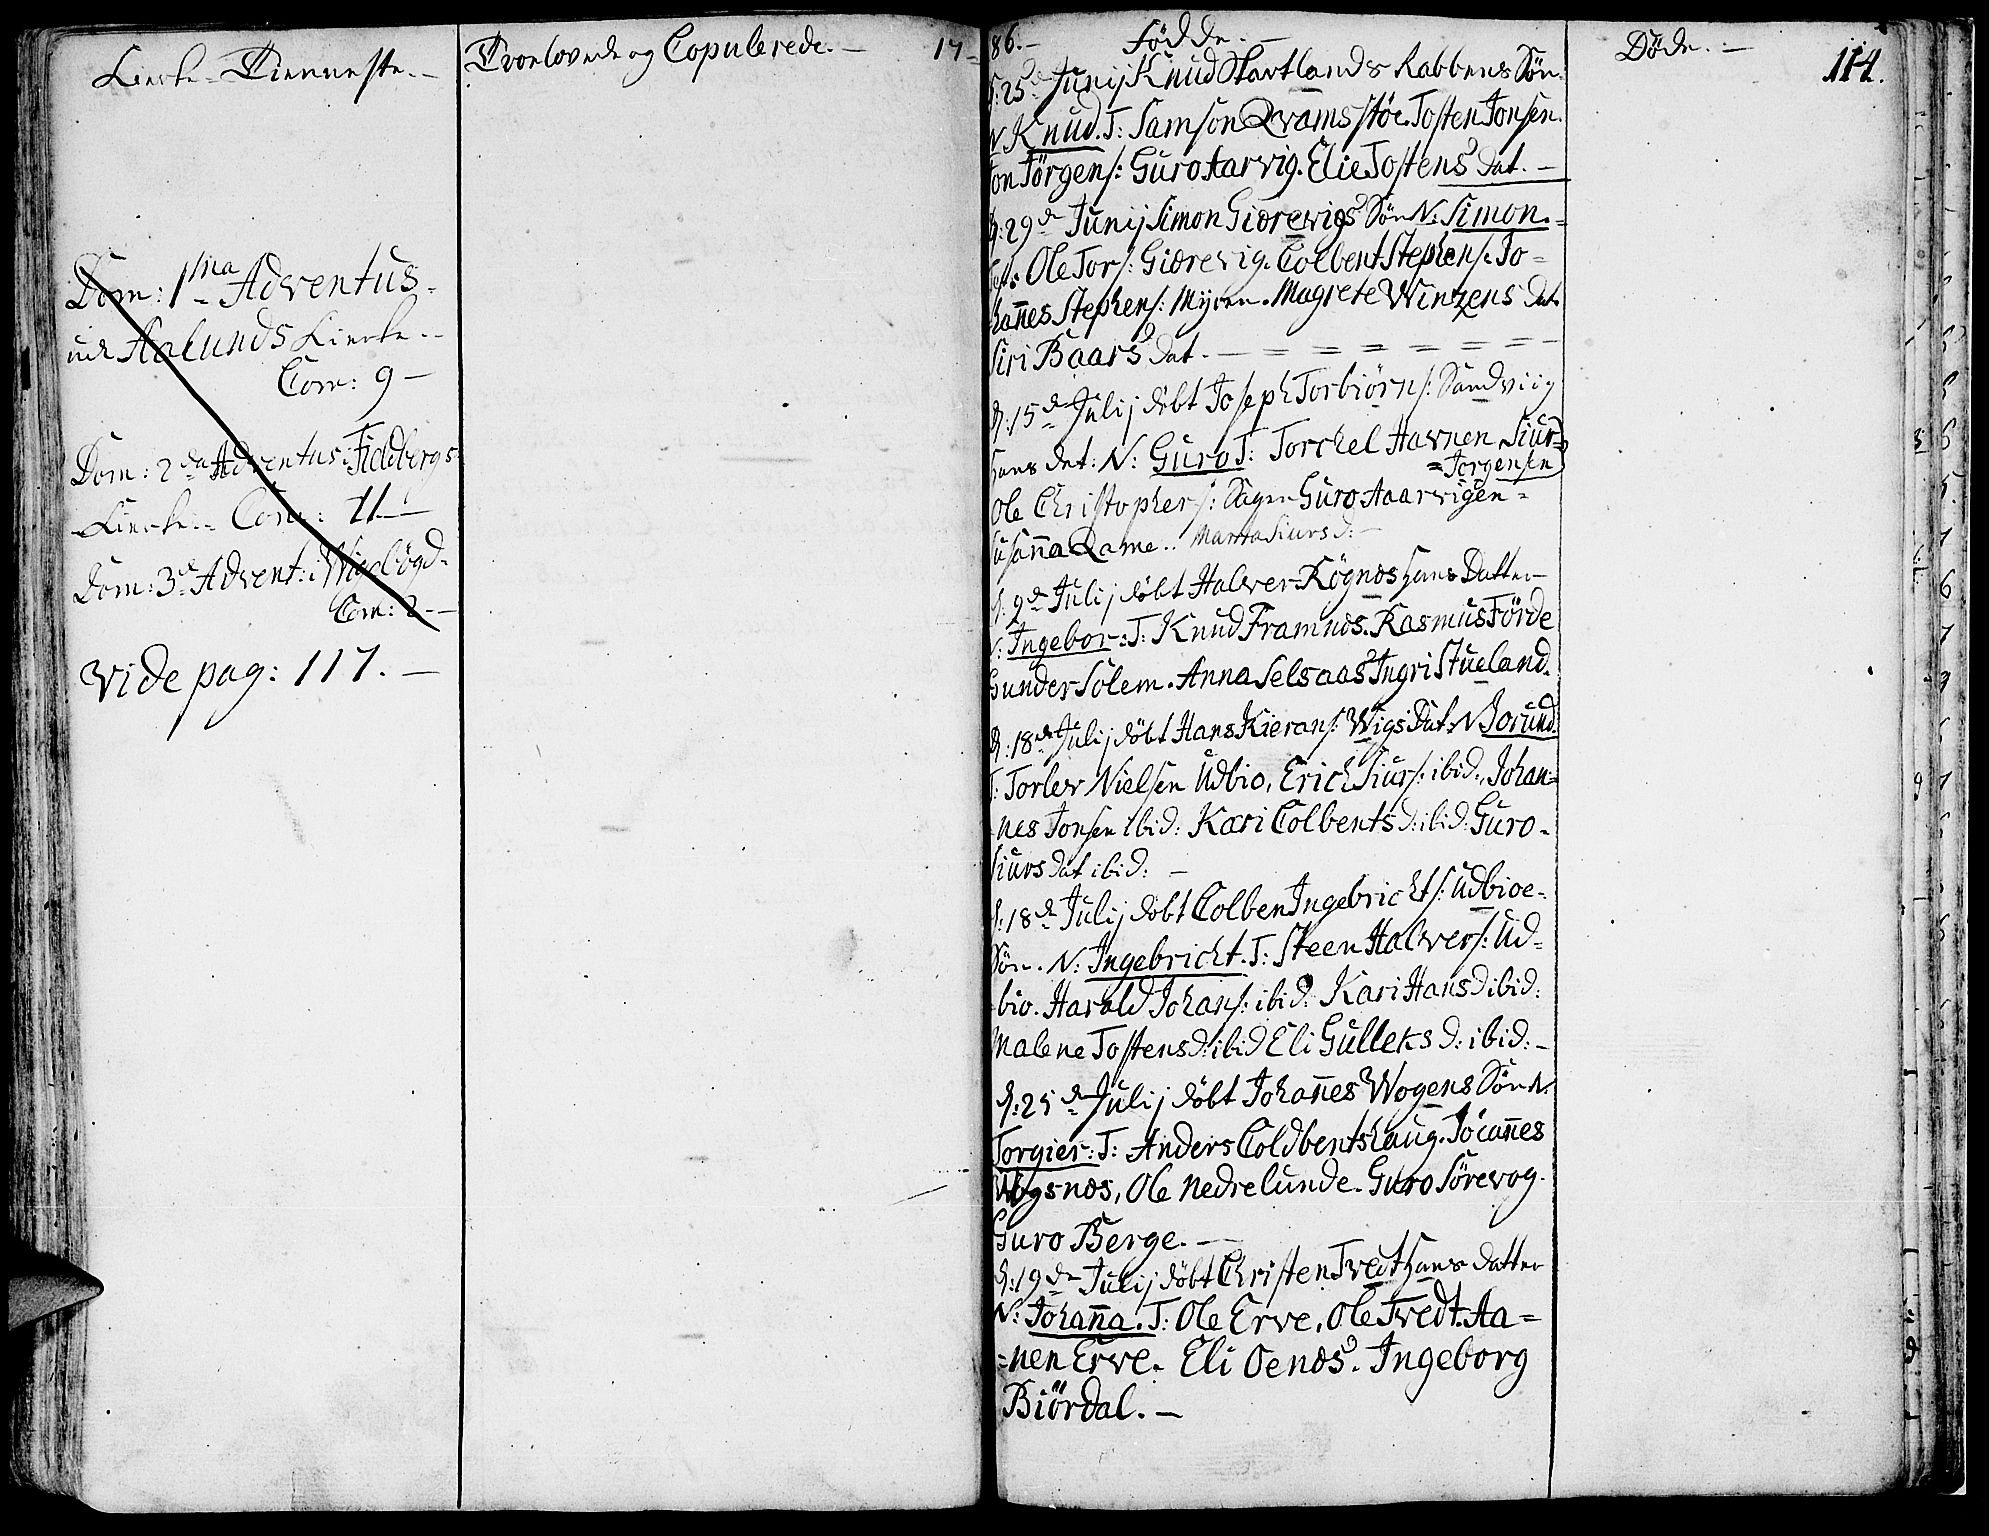 Kierke-Tienneste.-
Dom: 1ma Adventus-
udi Aalunds Kierke--
Com: 9-
Dom: 2da Adventus i Fieldbergs
Kierke-- Com: 11-
Dom: 3de Advent: i Wigebögd-
Com: 2--
Vide pag: 117.-
Troelovede og Copulerede.-
17-
86.- Födde.-
D: 25de Junij Knud Startlands Rabbens Sön
N Knud. T: Samson Qvamsstöe. Tosten Jonsen.
Jon Törgens: Guro Aarvig. Elie Tostens Dat.-
D: 29de Junij Simon Giærevigs Sön N: Simon.-
Test: Ole Tors: Giærevig. Colbent Stephens. Jo-
hañes Stephens: Myren. Magrete Winzens Dat
Siri Baars Dat.- = = = = = = -
D: 15de Julij döbt Joseph Torbiörns: Sandviig
hans Dat: N: Guro T: Torchel Havnen Siur
=Jorgensen
Ole Christophers: Sagen Guro Aaarvigen-
Susaña Rame.. Marta Siurs d:-
D: 9de Julij döbt Halver Rögnæs hans Datter
N: Ingebor: T: Knud Framnæs. Rasmus Förde
Gunder Solem. Anna Selsaas Ingri Stueland.
D: 18de Julij döbt Hans Kierans: Wigs Dat: N Jorund.
T: Torlev Nielsen Udbio, Erich Siurs: ibid:, Johan-
nes Jonsen ibid: Kari Colbents d: ibid: Guro-
Siurs Dat ibid: -
D: 18de Julij döbt Colben Ingebrichts: Udbioe-
Sön. N: Ingebricht. T: Steen Halvers: Ud-
bio. Harald Johans: ibid: Kari Hans d ibid:
Malene Tostens d: ibid Eli Gulleks d: ibid:-
D: 25de Julij döbt Johañes Wogens Sön N:
Torgier: T: Anders Coldbentshaug. Jocañes
Wogsnæs, Ole Nedrelunde. Guro Sörevog.
Guro Berge.-
D: 19de Julij döbt Christen Tvedt hans Datter
N: Johaña. T: Ole Erve, Ole Tvedt. Aa-
=nen Erve. Eli Oenæs. Ingeborg
Biördal.-
Döde.-
114.